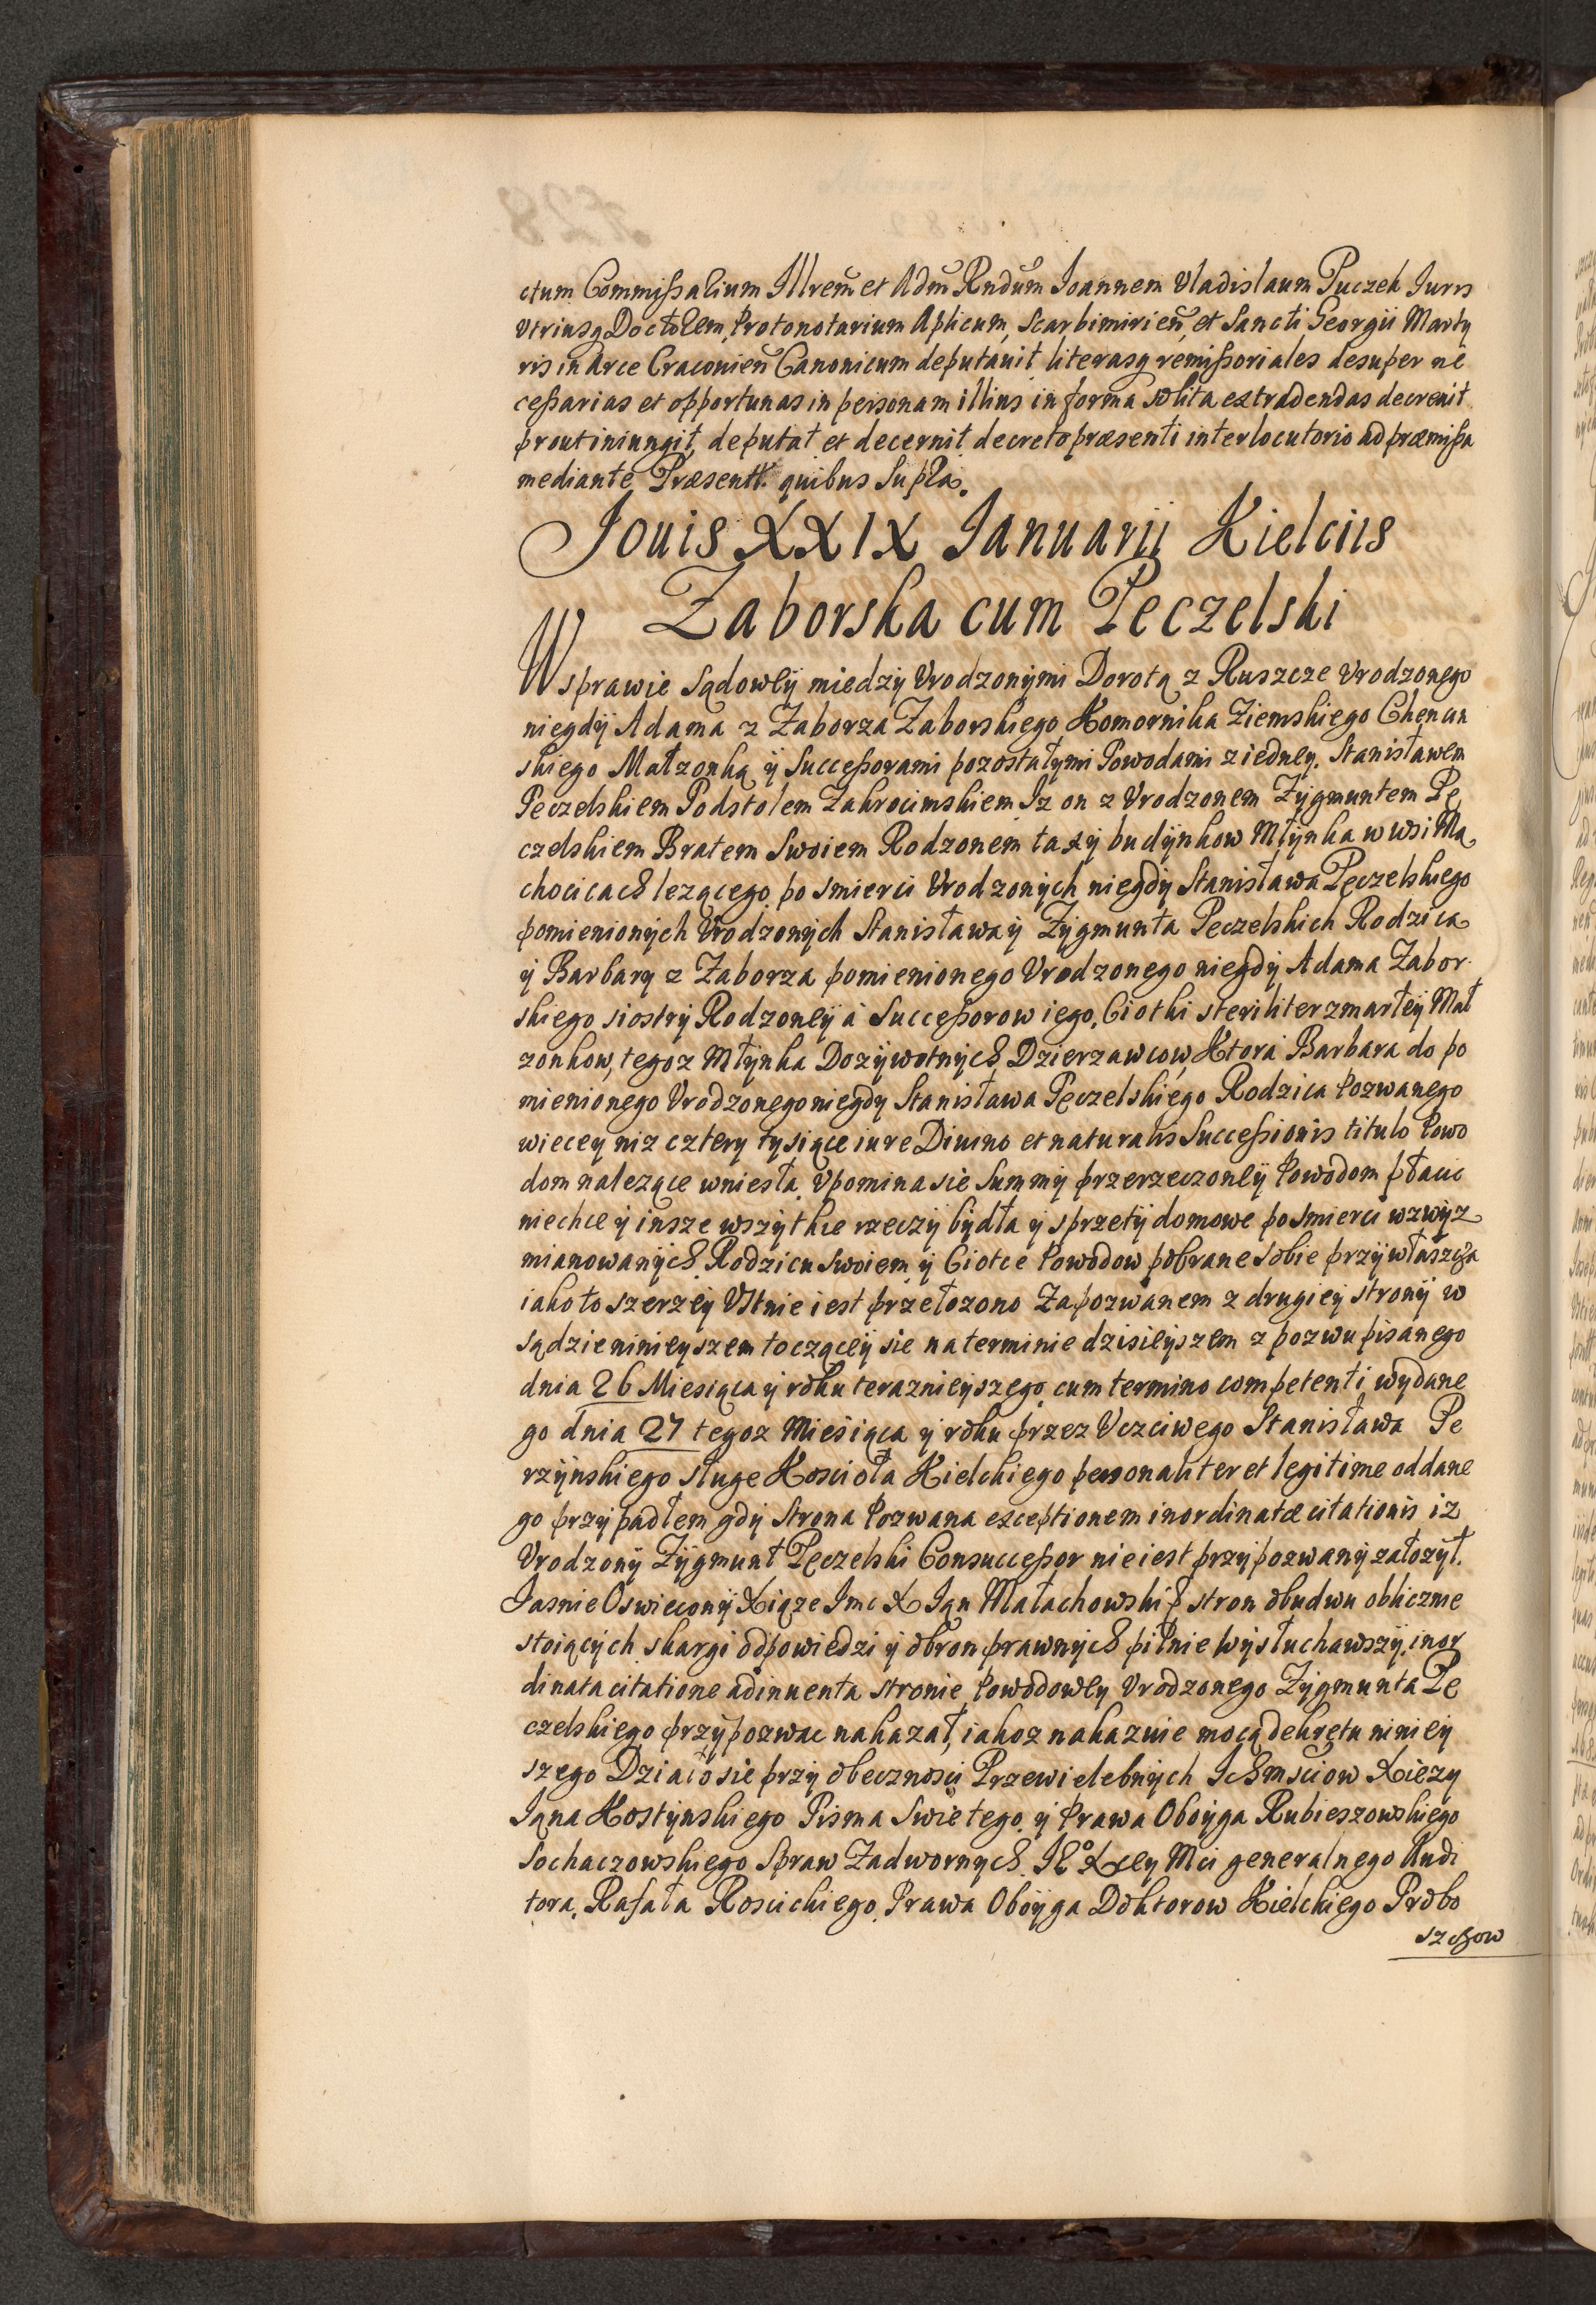 ctum Commißalium Illrem̃ et Adm̃ Rndum̃ Ioannem Vladislaum Puczek Iuris
Vtriusq Doctorem, Protonotarium Aplicum, Scarbimirień, et Sancti Georgii Marty
ris in Arce Cracovień Canonicum deputauit literasq remißoriales desuper ne
ceßarias et opportunas in personam illius in forma solita extradendas decreuit
prout iniungit, deputat et decernit decreto præsenti interlocutorio ad præmißa
mediante Præsentt. quibus Supra.
Jouis XXIX Ianuarii Kielciis
Zaborska cum Peczelski
W sprawie Sądowey miedzy Vrodzonymi Dorotą z Ruszcze Vrodzonego
niegdy Adama z Zaborza Zaborskiego Komornika Ziemskiego Chencin
skiego Małzonką y Succeßorami pozostałymi Powodami z iedney. Stanisławem
Peczelskiem Podstolem Zakrocimskiem Iz on z Vrodzonem Zygmuntem Pę
czelskiem Bratem Swoiem Rodzonem tazy budynkow Młynka w wsi Ma
chocicach lezącego po smierci Vrodzonych niegdy Stanisława Pęczelskiego
pomienionych Vrodzonych Stanisława y Zygmunta Peczelskich Rodzica
y Barbary z Zaborza pomienionego Vrodzonego niegdy Adama Zabor
skiego siostry Rodzoney a Succeßorow iego, Ciotki steriliter zmarłey Mał
zonkow, tegoz Młynka Dozywotnych Dzierzawcow, Ktora Barbara do po
mienionego Vrodzonego niegdy Stanisława Pęczelskiego Rodzica Pozwanego
wiecey niz cztery tysiące iure Diuino et naturalis Succeßionis titulo Powo
dom nalezące wniesła. Vpomina sie Summy przerzeczoney Powodom płacic
niechce y insze wszytkie rzeczy bydła y sprzety domowe po smierci wzwyz
mianowanych Rodzicu swoiem y Ciotce Powodow pobrane sobie przywłaszcza
iako to szerzey Vstnie iest przełozono Zapozwanem z drugiey strony w
sądzie ninieyszem toczącey sie na terminie dzisieyszem z pozwu pisanego
dnia 26 Miesiąca y roku terazneiyszego cum termino competenti wydane
go dnia 27 tegoz Miesiąca y roku przez Vczciwego Stanisława Pe
rzynskiego sługe Koscioła Kielckiego personaliter et legitime oddane
go przypadłem gdy Strona Pozwana exceptionem inordinatæ citationis iz
Vrodzony Zygmunt Pęczelski Consucceßor nie iest przypozwany załozył.
Jasnie Oswiecony Xiąze Imc X Ian Małachowski stron obudwu oblicznie
stoiących skargi odpowiedzi y obron prawnych pilnie wysłuchawszy, inor
dinata citatione adinuenta stronie Powodowey Vrodzonego Zygmunta Pę
czelskiego przypozwac nakazał, iakoz nakazuie mocą dekretu niniey
szego Działo sie przy obecznosci Przewielebnych Ichmsciow Xiezy
Iana Kostynskiego Pisma Swietego y Prawa Oboyga Rubieszowskiego
Sochaczowskiego Spraw Zadwornych Xcey Mci generalnego Audi
tora, Rafała Roscickiego, Prawa Oboyga Doktorow Kielckiego Probo
szczow